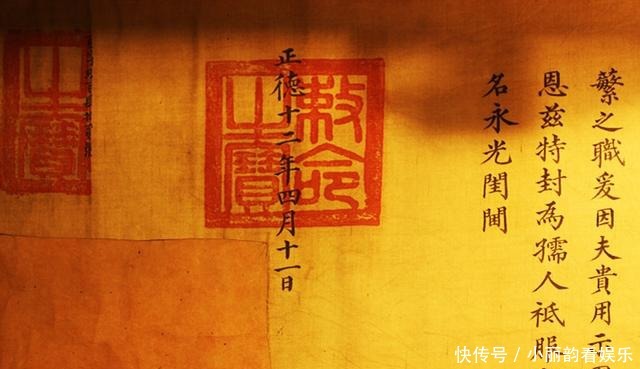 蘩之職爰因夫貴用示
恩茲特封為孺人祗服
名永光閨閫
正德十二年四月十一日
敕命
之寶
之寶
快传号 / 小丽韵看娱乐